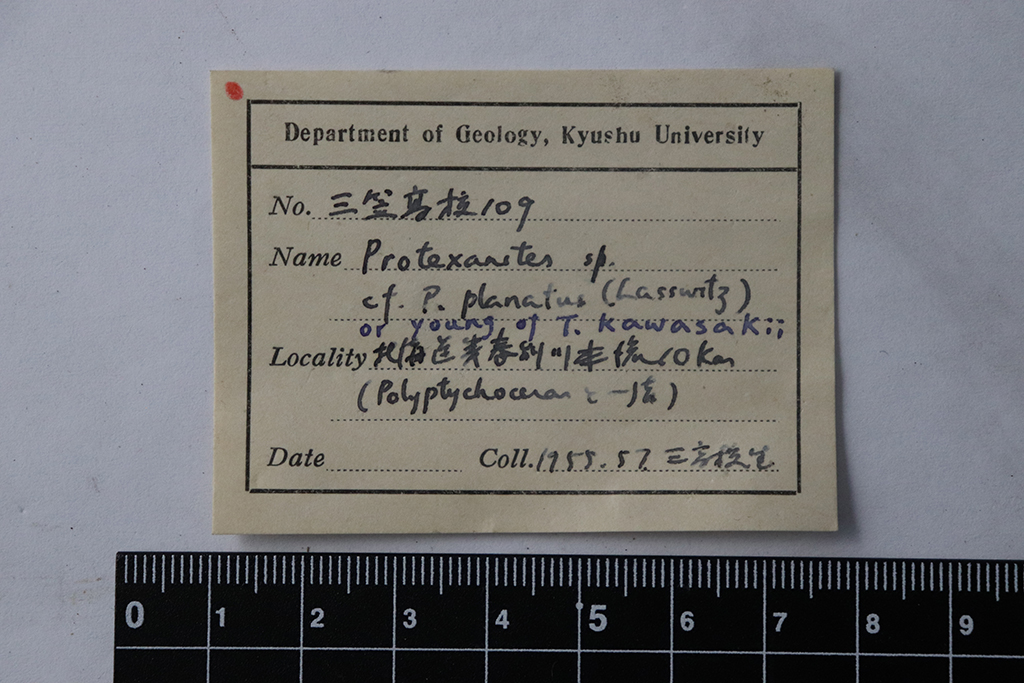 Department of Geology, Kyushu University
No. 三笠高校109
Name Protexanites sp.
cf. P. planatus (Lasswitz)
or young of T. kawasakii
Locality 北海道芦春別川本流10Km
(Polyptychoceras と一緒)
Date Coll. 1955.57. 三高校生
0 1 2 3 4 5 6 7 8 9